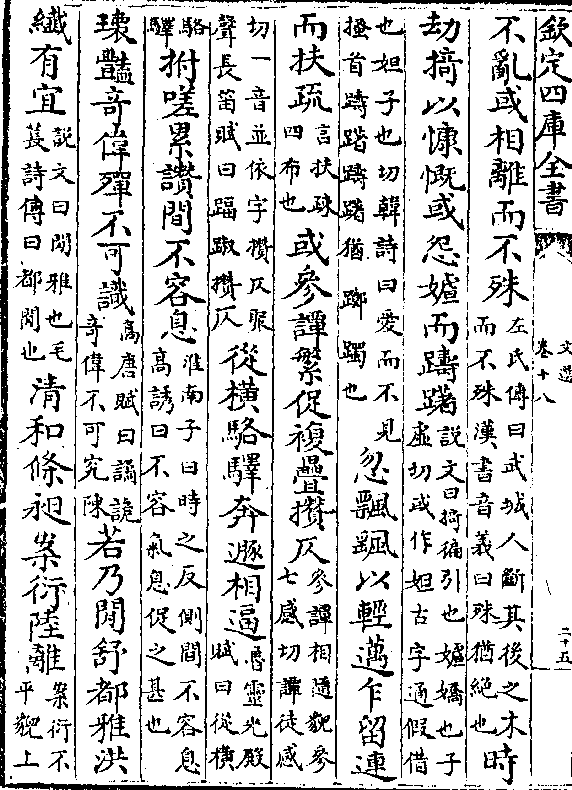 欽定四庫全書 文選卷十八 二十五
不亂或相離而不殊左氏傳曰武城人斷其後之木而不殊漢書音義曰殊猶絶也時
劫掎以慷慨或怨㜘而躊躇説文曰掎徧引也㜘嬌也子虛切或作姐古字通假借
也姐子也切韓詩曰愛而不見搔首躊躇躊躇猶躑躅也忽飄颻以輕邁乍留連
而扶疏言扶疎四布也或參譚繁促複疊攢仄參譚相隨貌參七感切譚徒感
切一音並依字攢仄聚聲長笛賦曰踾踧攢仄從橫駱驛奔遯相逼魯靈光殿賦曰從橫
駱驛拊嗟累讚間不容息淮南子曰時之反側間不容息高誘曰不容氣息促之甚也
瓌豔奇偉殫不可識高唐賦曰譎詭奇偉不可究陳若乃閒舒都雅洪
纎有宜説文曰閒雅也毛萇詩傳曰都閒也清和條昶案衍陸離案衍不平貌上